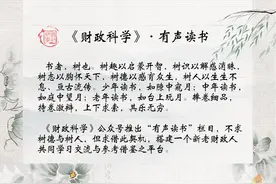 《财政科学》·有声读书
书者，树也。树趣以启蒙开智，树识以解惑消昧，
树志以胸怀天下，树德以感育众生，树人以生生不
息、亘古流传。少年读书，如隙中窥月；中年读书，
如庭中望月；老年读书，如台上玩月。捧卷细品，
持卷激辩，上下求索，其乐无穷。
《财政科学》公众号推出“有声读书”栏目，不求
树德与树人，但求借此契机，搭建一个新老财政人
共同学习交流与参考借鉴之平台。